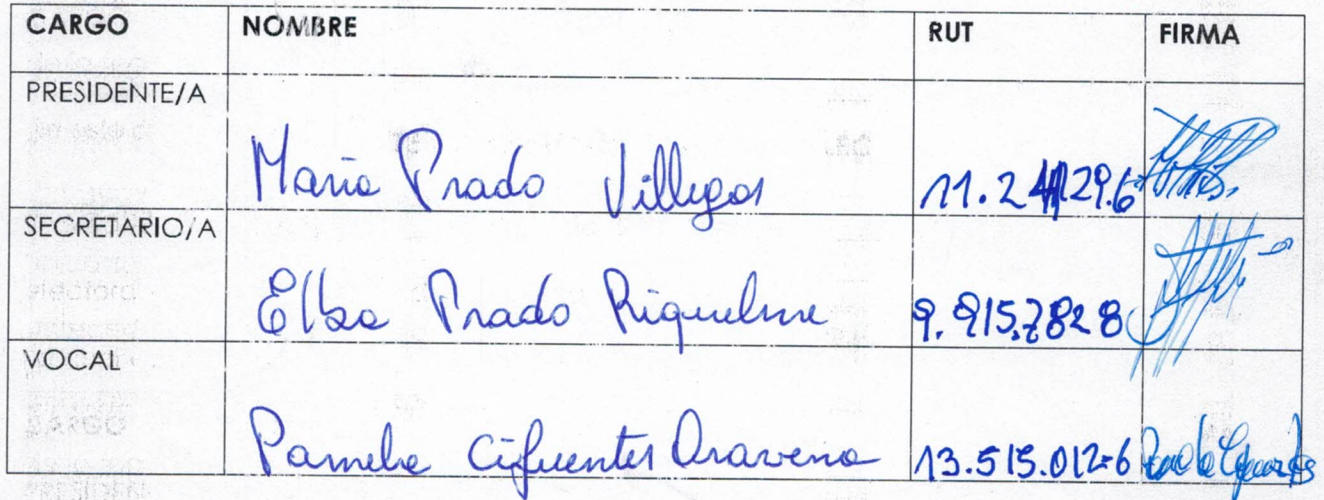 CARGO NOMBRE RUT FIRMA
PRESIDENTE/A
Maria Prado Villegas
SECRETARIO/A
Elba Prado Riquelme 9.915.782 8
VOCAL
Pamela Cifuentes Aravena 13.515.012-6